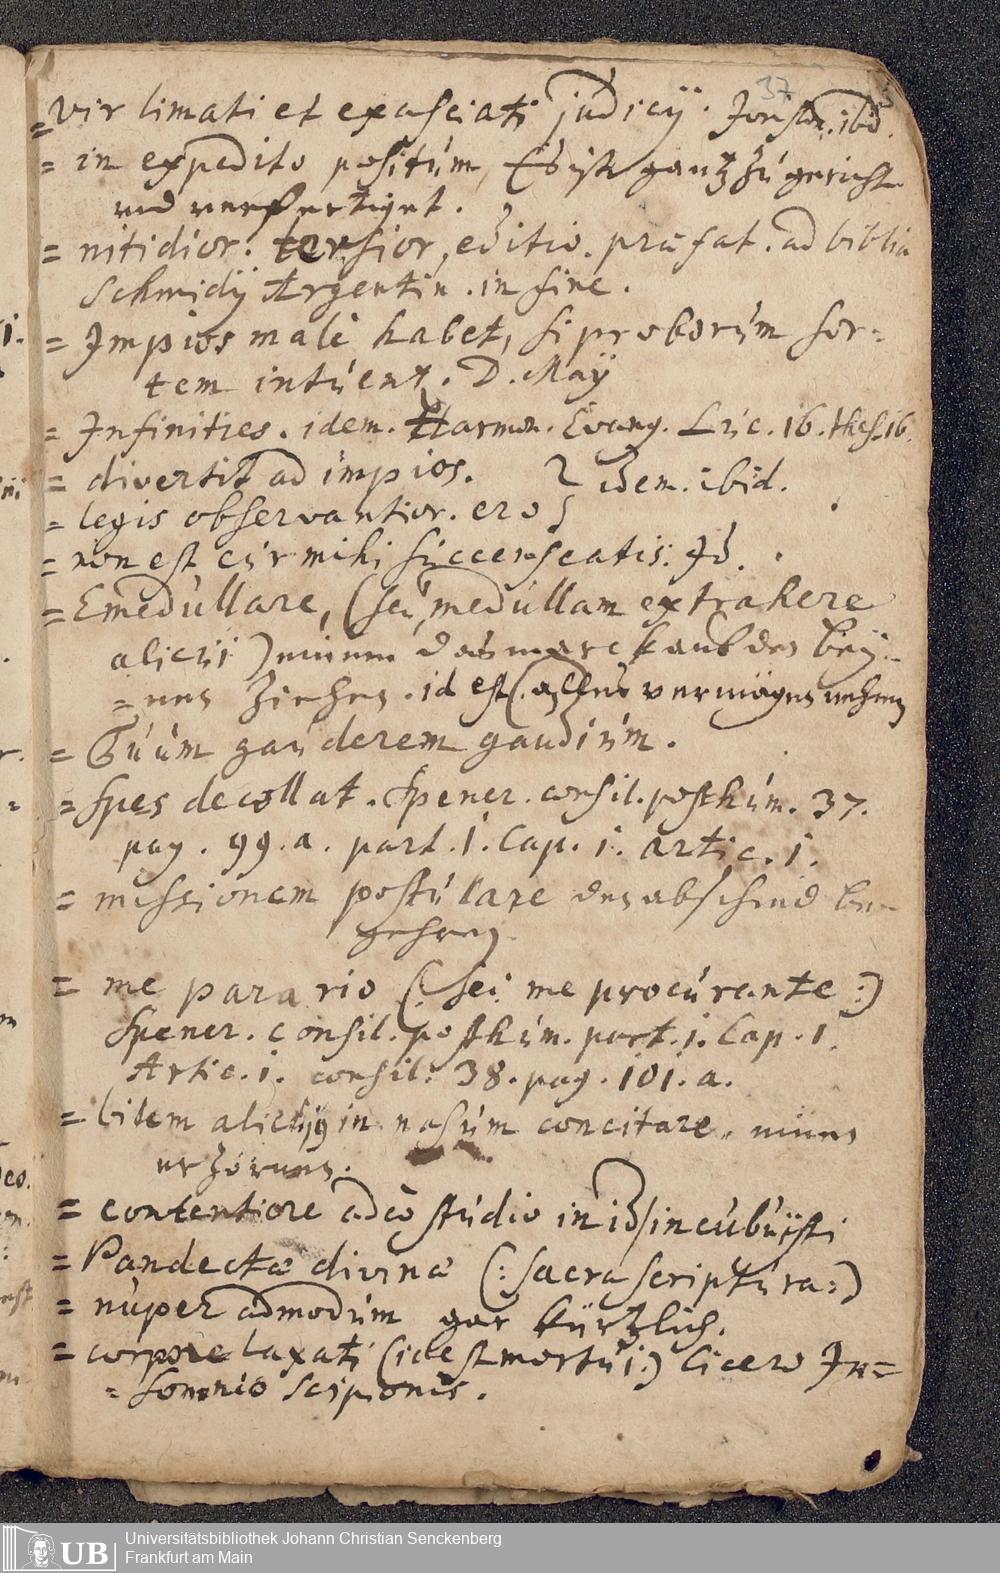 37
= vir limati et exasciati judicij. Jonston. ibid.
= in expedito positum, Es ist gantz zugericht
und verfertiget.
= nitidior. tersior, editio. præfat. ad biblia
Schmidij Argentin. in fine.
= Impios malè habet, si proborum sor=
tem intuent. D. Maÿ
= Infinities. idem. Harmon. Evang. Luc. 16. thes. 16.
= divertit ad impios. } idem. ibid.
= legis observantior. ero }
= non est cur mihi succenseatis. Id.
= Emedullare, (seu medullam extrahere
alicui) einem das marck aus den beÿ=
=nen ziehen. id est (alles vermögen nehmen
= Suum gauderem gaudium.
= Spes decollat. Spener. consil. posthum. 37.
pag. 99. a. part. 1. Cap. 1. artic. 1.
= missionem postulare den abschied be=
gehren
= me parario (: seu me procurante :)
Spener. consil. posthum. part. 1. Cap. 1.
Artic. 1. consil. 38. pag. 101. a.
= bilem alicujus in nasum concitare. einen
erzörnen.
= contentiore adeò studio in id incubuisti
= Pandectæ divinæ (: sacra scriptura :)
= nuper admodum gar kürtzlich.
= corpore laxati (id est mortui :) Cicero In=
= somnio Scipionis.
UB
Universitätsbibliothek Johann Christian Senckenberg
Frankfurt am Main